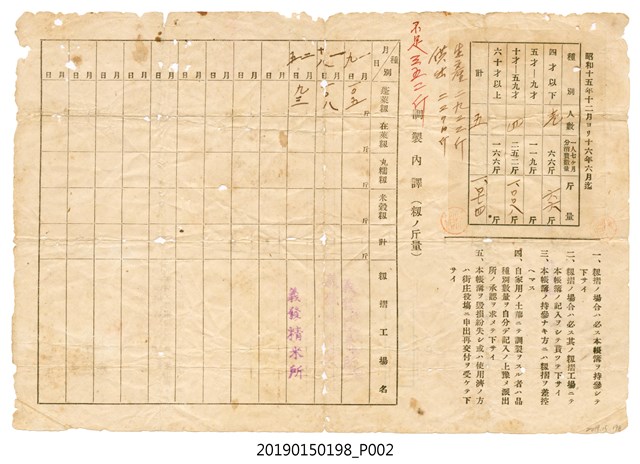 昭和十五年十二月ヨリ十六年六月迄
種別 人數 一人七ケ月分消費數量 斤量
四才以下 六六斤 斤
五才―九才 一一九斤 斤
十才―五九才 二五二斤 斤
六十才以上 一六六斤 斤
計 五 斤
生產 二九二二斤
供出
不足 三五二斤
調製內譯（籾ノ斤量）
月日／種別
蓬萊籾
在萊籾
丸糯籾
米穀籾
計
籾摺工場名
義發精米所
一、籾摺ノ場合ハ必ズ本帳簿ヲ持參シテ下サイ
二、籾摺ノ場合ハ必ズ其ノ籾摺工場ニテ本帳簿ノ記入ヲシテ貰ツテ下サイ
三、本帳簿ノ持參ナキ方ニハ籾摺ヲ差控ヘマス
四、自家用ノ土壟ニテ調製ヲスル者ハ品種別數量ヲ自分デ記入ノ上豫メ派出所ノ承認ヲ求メテ下サイ
五、本帳簿ヲ毀損紛失シ或ハ使用濟ノ方ハ街庄役場ニ申出再交付ヲ受ケテ下サイ
20190150198_P002